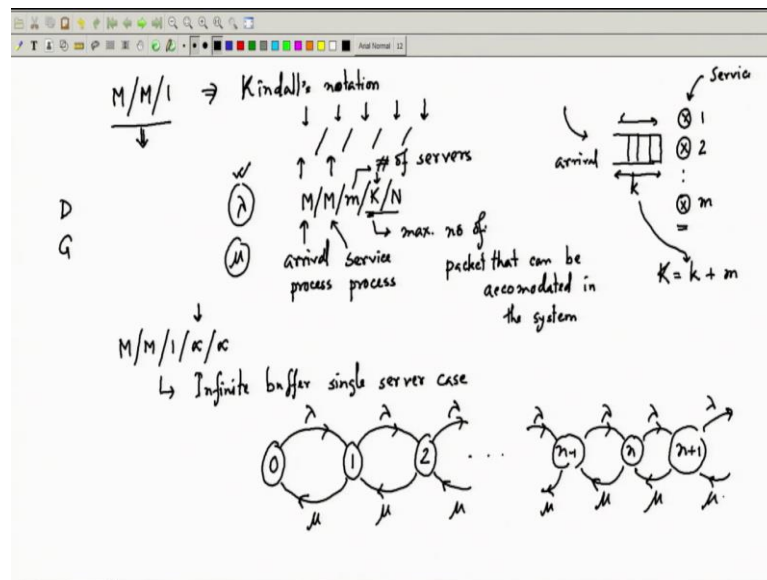 Arial Normal 12
M/M/1 ⇒ Kindall's notation
/ / / /
# of servers
D
G
λ
μ
M/M/m/K/N
arrival process
service process
max. no of
packet that can be
accomodated in
the system
Service
arrival
k
1
2
:
m
K = k + m
M/M/1/∝/∝
Infinite buffer single server case
λ λ λ λ λ λ λ
0 1 2 . . . n-1 n n+1
μ μ μ μ μ μ μ